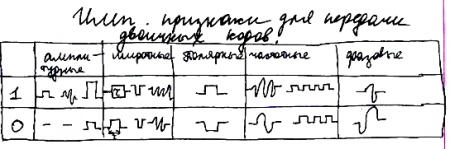 Имп. признаки для передачи
двоичных кодов.
ампли- широтные полярные частотные фазовые
тудные
1
0